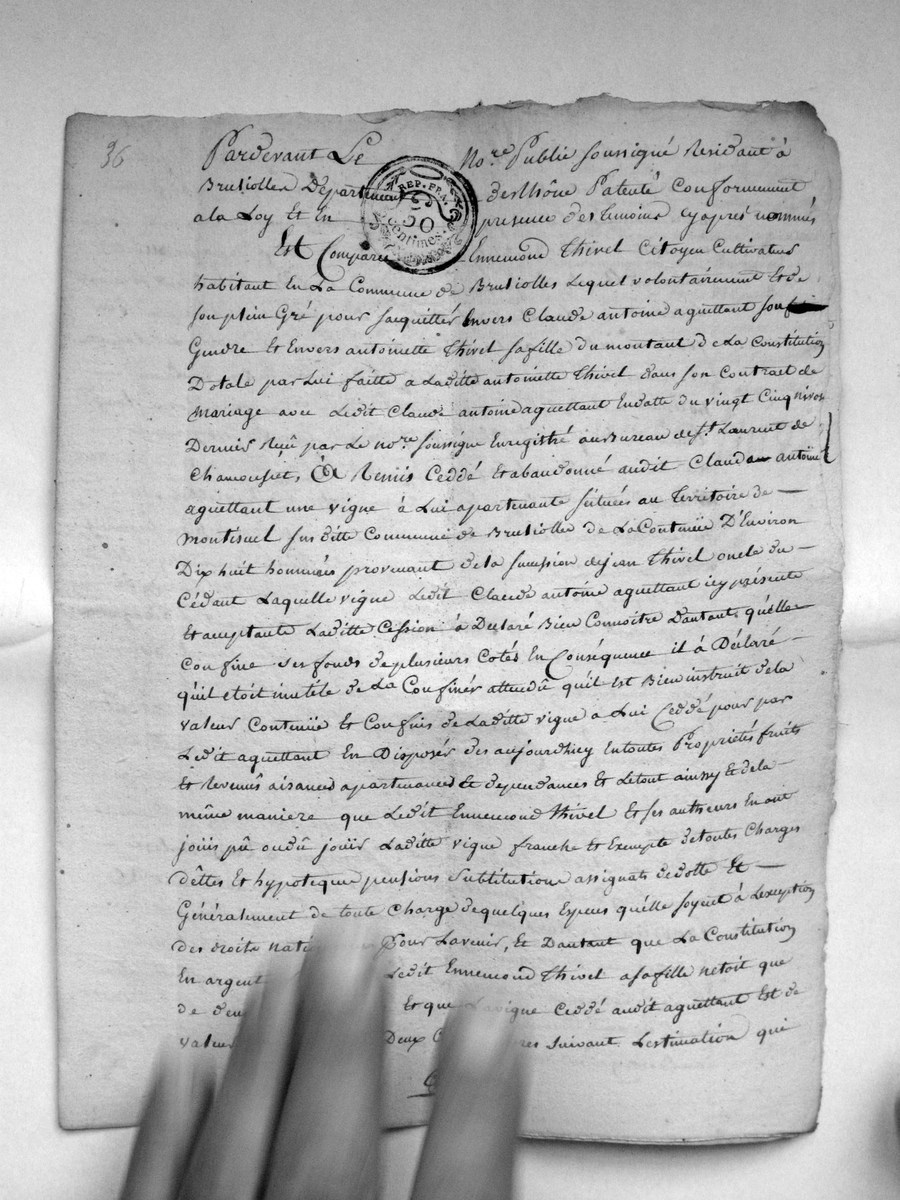 36
Pardevant Le No.re Public soussigné Residant à
REP. FRA.
50
centimes.
Brussiolles Departement des Rhône Patenté conformement
a la Loy Et En presence des temoins cy apres nommés
Est Comparu Ennemond Thivel Citoyen Cultivateur
habitant En La Commune de Brussiolles Lequel volontairement Et de
son plein Gré pour sacquitter Envers Claude antoine aguettant son
Gendre Et Envers antoinette Thivel sa fille du montant de La Constitution
Dotale par Lui faitte a Laditte antoinette Thivel dans son contract de
mariage avec Ledit Claude antoine aguettant En datte du vingt Cinq nivos
Dernier Reçû par Le no.re soussigné Enregistré au Bureau de s.t Laurent de
Chamousset, A Remis Ceddé Et abandonné audit Claude antoine
aguettant une vigne à Lui apartenante situées au Territoire de
montisuel susditte Commune de Brussiolle de La Contenüe D'Environ
Dix huit hommées provenant de la succession de jean Thivel oncle du
Cédant Laquelle vigne Ledit Claude antoine aguettant icy présente
Et acceptante Laditte Cession à Declaré Bien Connoitre Dautant quélle
Confine ses fonds de plusieurs Cotés En Conséquence il à Déclaré
quil etoit inutile de La Confiner attendû quil est Bien instruit de la
valeur Contenüe Et Confins de Laditte vigne a Lui Ceddé pour par
Ledit aguettant En Disposér des aujourdhuy En toutes Propriétés fruits
Et Revenûs aisances apartenances Et dependances Et Le tout ainssy Et de la
même maniere que Ledit Ennemond Thivel Et ses autheurs En ont
joüis pû ou dû joüir Laditte vigne franche Et Exempte de toutes Charges
dêttes Et hypoteque pensions substitutions assignats de dotte Et
Généralement de toute Charge de quelques Especes quélle soyent à Lexception
des droits Pour Lavenir, Et Dautant que La Constitution
En argent Ledit Ennemond Thivel a sa fille netoit que
de Et que La vigne Ceddé audit aguettant Est de
valeur Deux suivant Lestimation qui